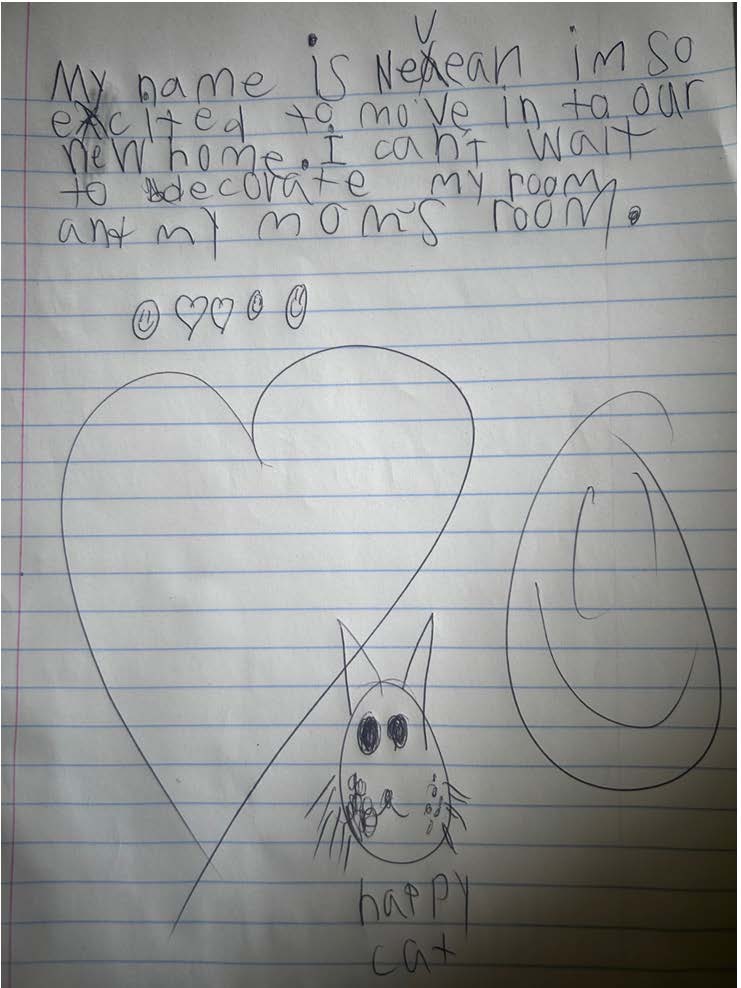 My name is Nevean im so
excited to move in to our
new home. I can't wait
to decorate my room
and my mom's room.
happy
cat